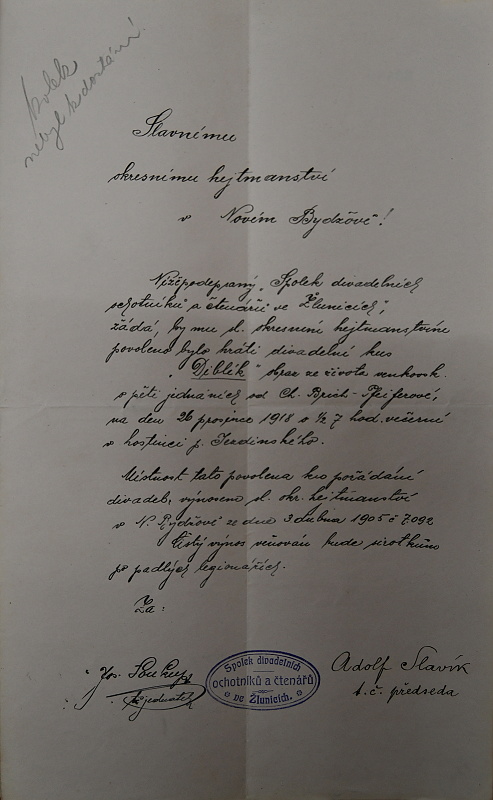 kolek
nebyl k dostání!
Slavnému
okresnímu hejtmanství
v Novém Bydžově!
Nížepodepsaný „Spolek divadelních
ochotníků a čtenářů ve Žlunicích",
žádá, by mu sl. okresním hejtmanstvím
povoleno bylo hráti divadelní kus
„Diblík" obraz ze života venkovsk.
o pěti jednáních od Ch. Birch-Pfeiferové,
na den 26 prosince 1918 o ½ 7 hod. večerní
v hostinci p. Ferdinského.
Místnost tato povolena ku pořádání
divadel, výnosem sl. okr. hejtmanství
v N. Bydžově ze dne 3 dubna 1905 č 7092.
Čistý výnos věnován bude sirotkům
po padlých legionářích.
Za:
Jos.
jednatel
Spolek divadelních
ochotníků a čtenářů
ve Žlunicích.
Adolf Slavík
t. č. předseda